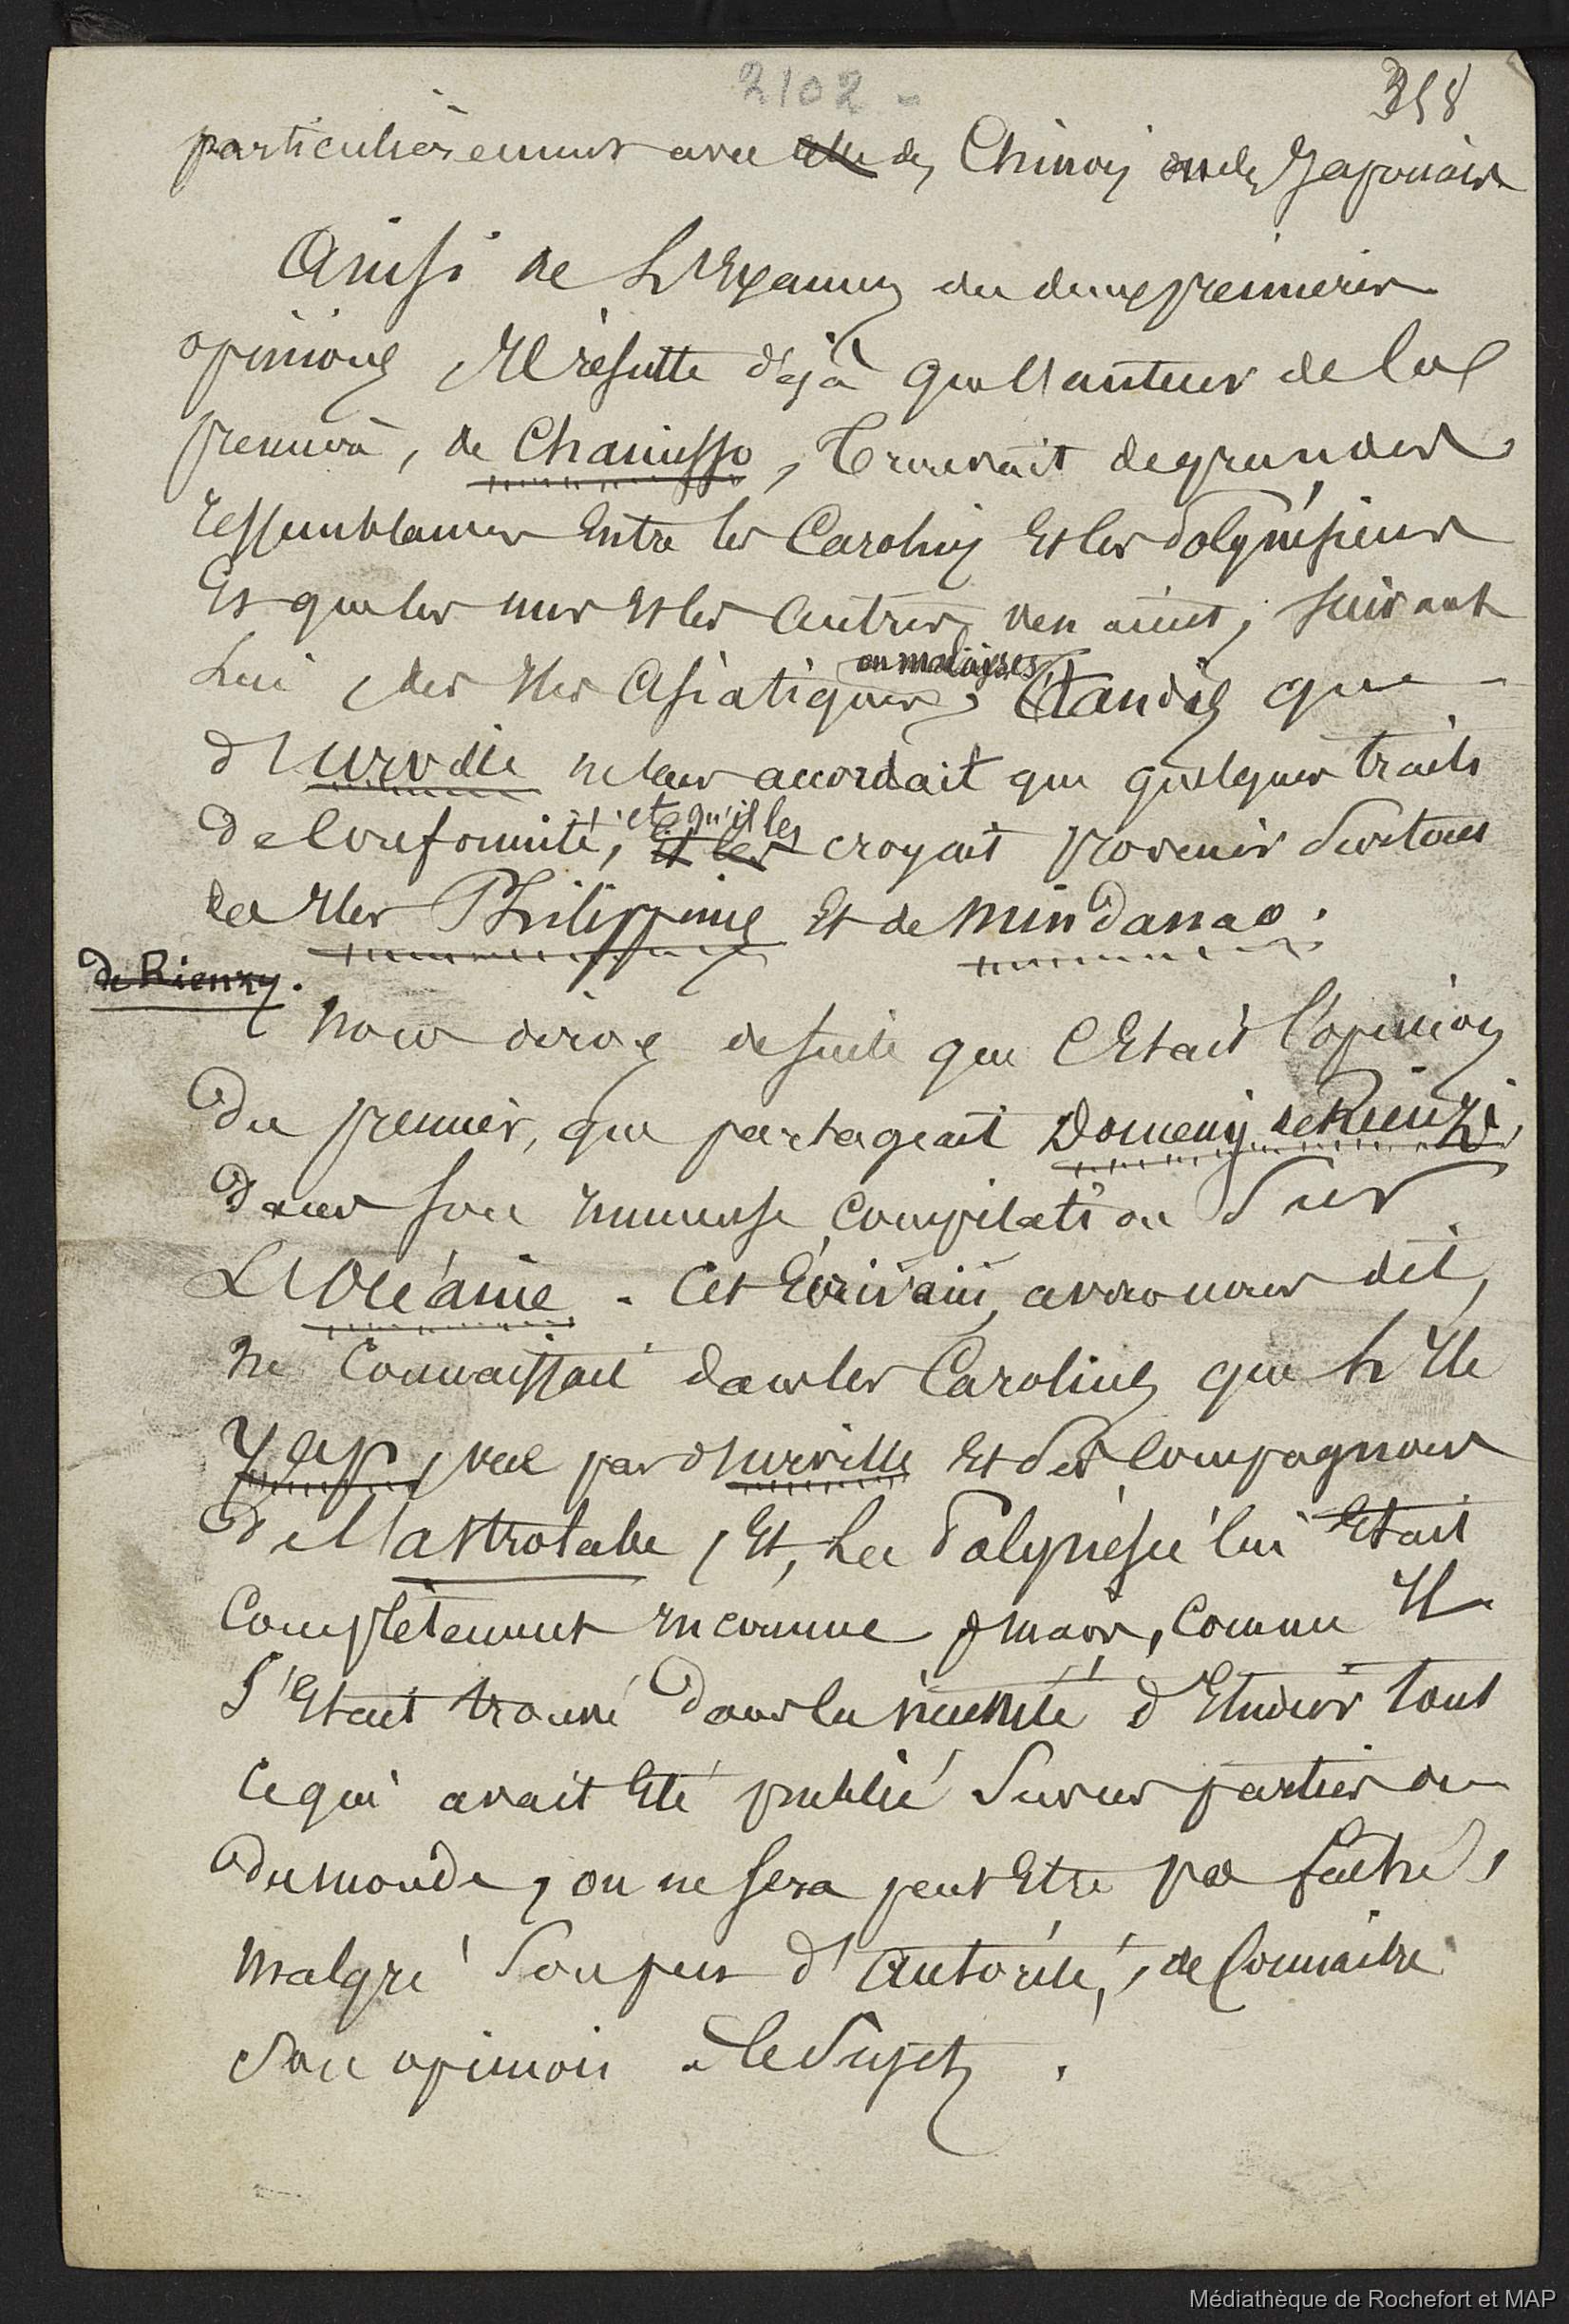 2102 -
358
particulièrement avec celle des Chinois ou des Japonais
Ainsi de L'Examen des deux premières
opinions, Il résulte déjà que l'auteur de la
première, de Chamisso, Trouvait de grandes
ressemblances Entre les Carolins Et les Polynésiens
Et que les uns Et les Autres venaient, suivant
ou malaises
Lui, des Iles Asiatiques, Tandis que
d'Urville ne leur accordait que quelques traits
et qu'il les
de Conformité, et les croyait provenir surtout
des Iles Philippines Et de Mindanao.
de Rienzy.
Nous dirons de suite que C'Etait l'opinion
du premier, que partageait Domeny de Rienzi,
dans son immense compilation Sur
L'Océanie. Cet Ecrivain, avons nous dit,
ne Connaissait dans les Carolines que L'Ile
Yap, vue par d'Urville Et Ses Compagnons
de l'Astrolabe, Et, La Polynésie lui Etait
Complètement inconnue; mais, Comme Il
S'Etait trouvé dans la nécessité d'Etudier tout
Ce qui avait Eté publié Sur ces parties
du monde, on ne sera peut Etre pas fâché,
Malgré Son peu d'Autorité, de Connaître
Son opinion à Ce Sujet.
Médiathèque de Rochefort et MAP